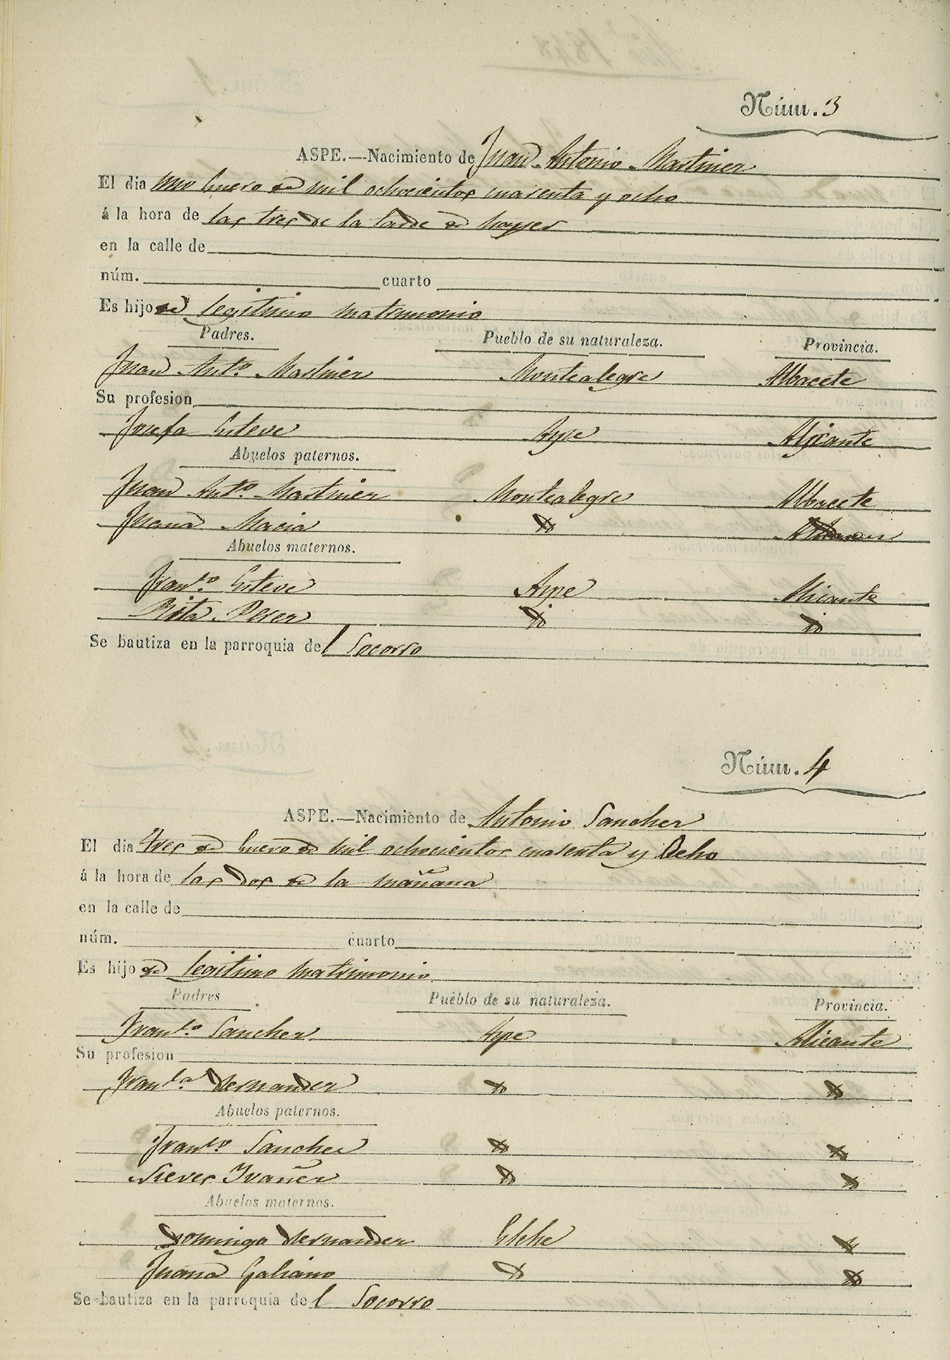 Núm. 3
ASPE.—Nacimiento de Juan Antonio Martinez
El dia uno Enero de mil ochocientos cuarenta y ocho
á la hora de las tres de la tarde de hayer
en la calle de
núm. cuarto
Es hijo de legitimo matrimonio
Padres. Pueblo de su naturaleza. Provincia.
Juan Antº Martinez Montealegre Albacete
Su profesion
Josefa Esteve Aspe Alicante
Abuelos paternos.
Juan Antº Martinez Montealegre Albacete
Juana Macia
Abuelos maternos.
Franco Esteve Aspe Alicante
Rita Perez
Se bautiza en la parroquia del Socorro
Núm. 4
ASPE.—Nacimiento de Antonio Sanchez
El dia tres de Enero de mil ochocientos cuarenta y Ocho
á la hora de las dos de la mañana
en la calle de
núm. cuarto
Es hijo de legitimo matrimonio
Padres Pueblo de su naturaleza. Provincia.
Franco Sanchez Aspe Alicante
Su profesion
Franca Hernandez
Abuelos paternos.
Franco Sanchez
Nieves Ivañez
Abuelos maternos.
Domingo Hernandez Elche
Juana Galiano
Se bautiza en la parroquia del Socorro